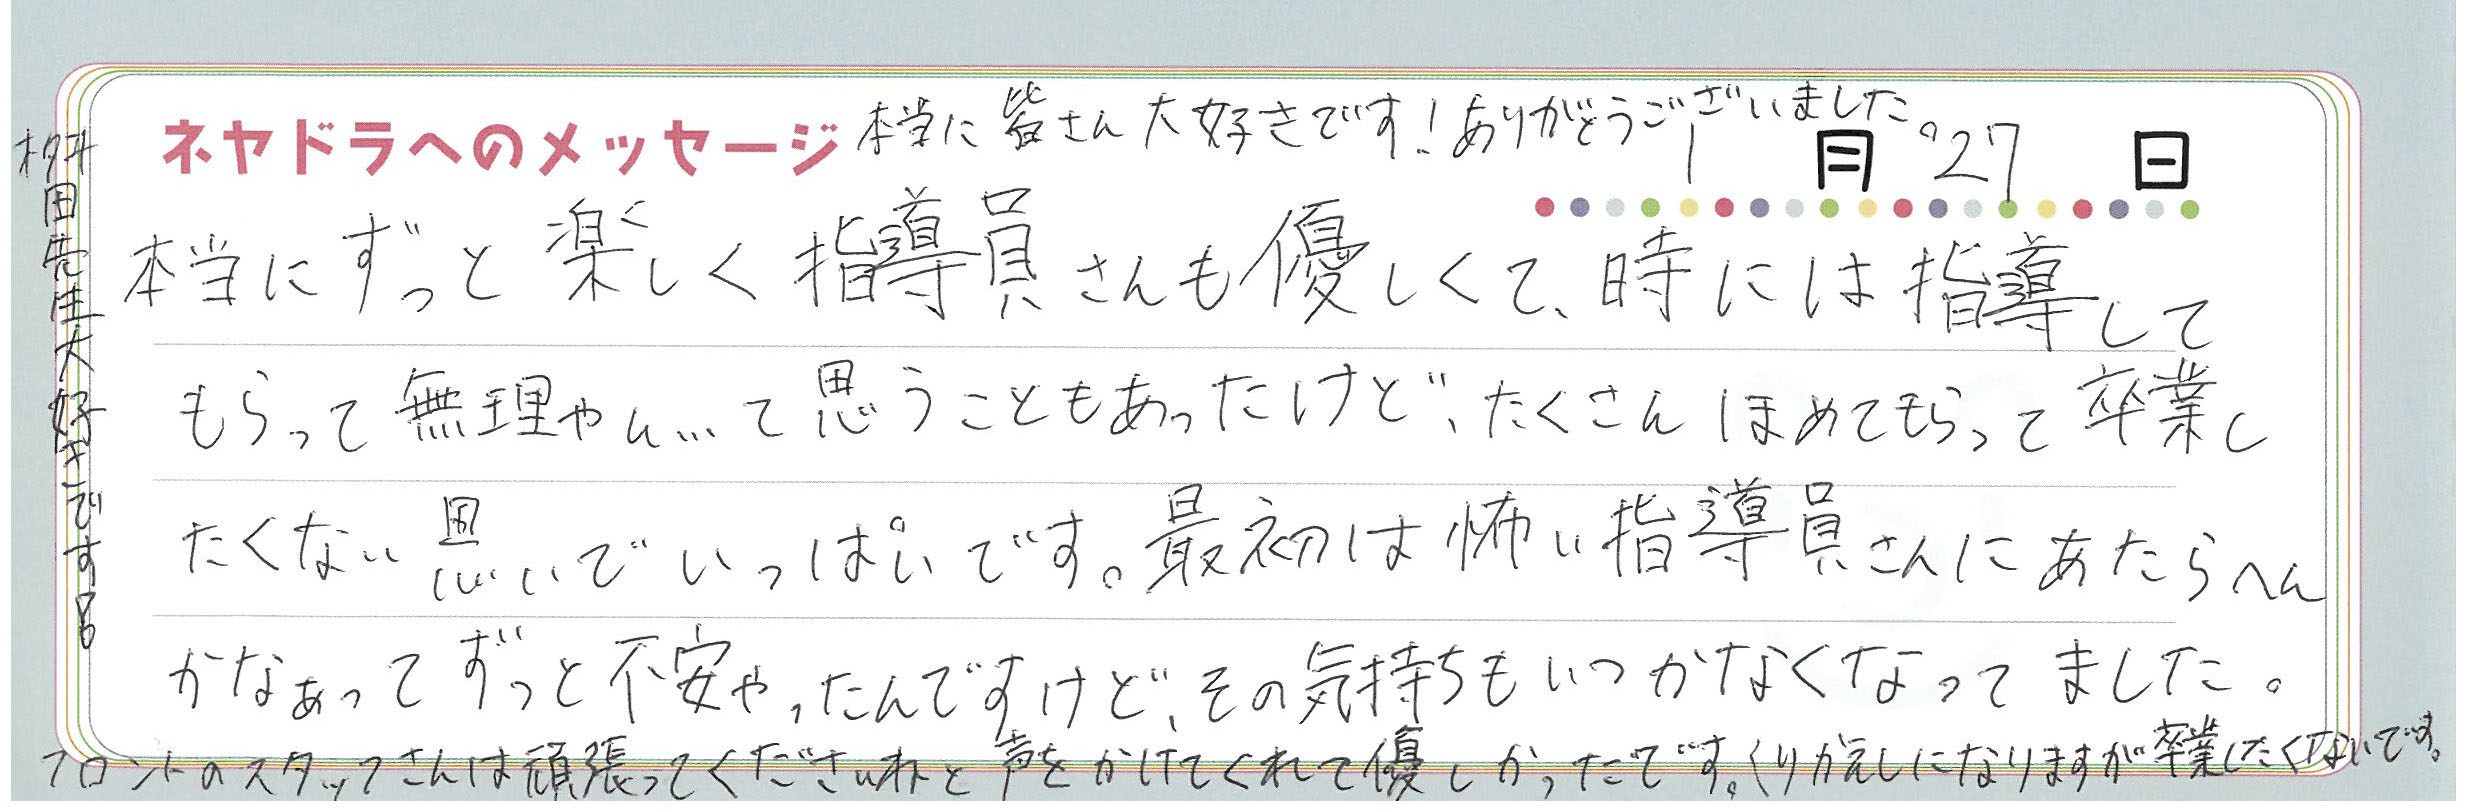 ネヤドラへのメッセージ
本当に皆さん大好きです！ありがとうございました。
1月27日
本当にずっと楽しく指導員さんも優しくて、時には指導して
もらって無理やん…て思うこともあったけど、たくさんほめてもらって卒業し
たくない思いでいっぱいです。最初は怖い指導員さんにあたらへん
かなぁってずっと不安やったんですけど、その気持ちもいつかなくなってました。
フロントのスタッフさんは頑張ってくださいねと声をかけてくれて優しかったです。くりかえしになりますが卒業したくないです。
桝田先生大好きです